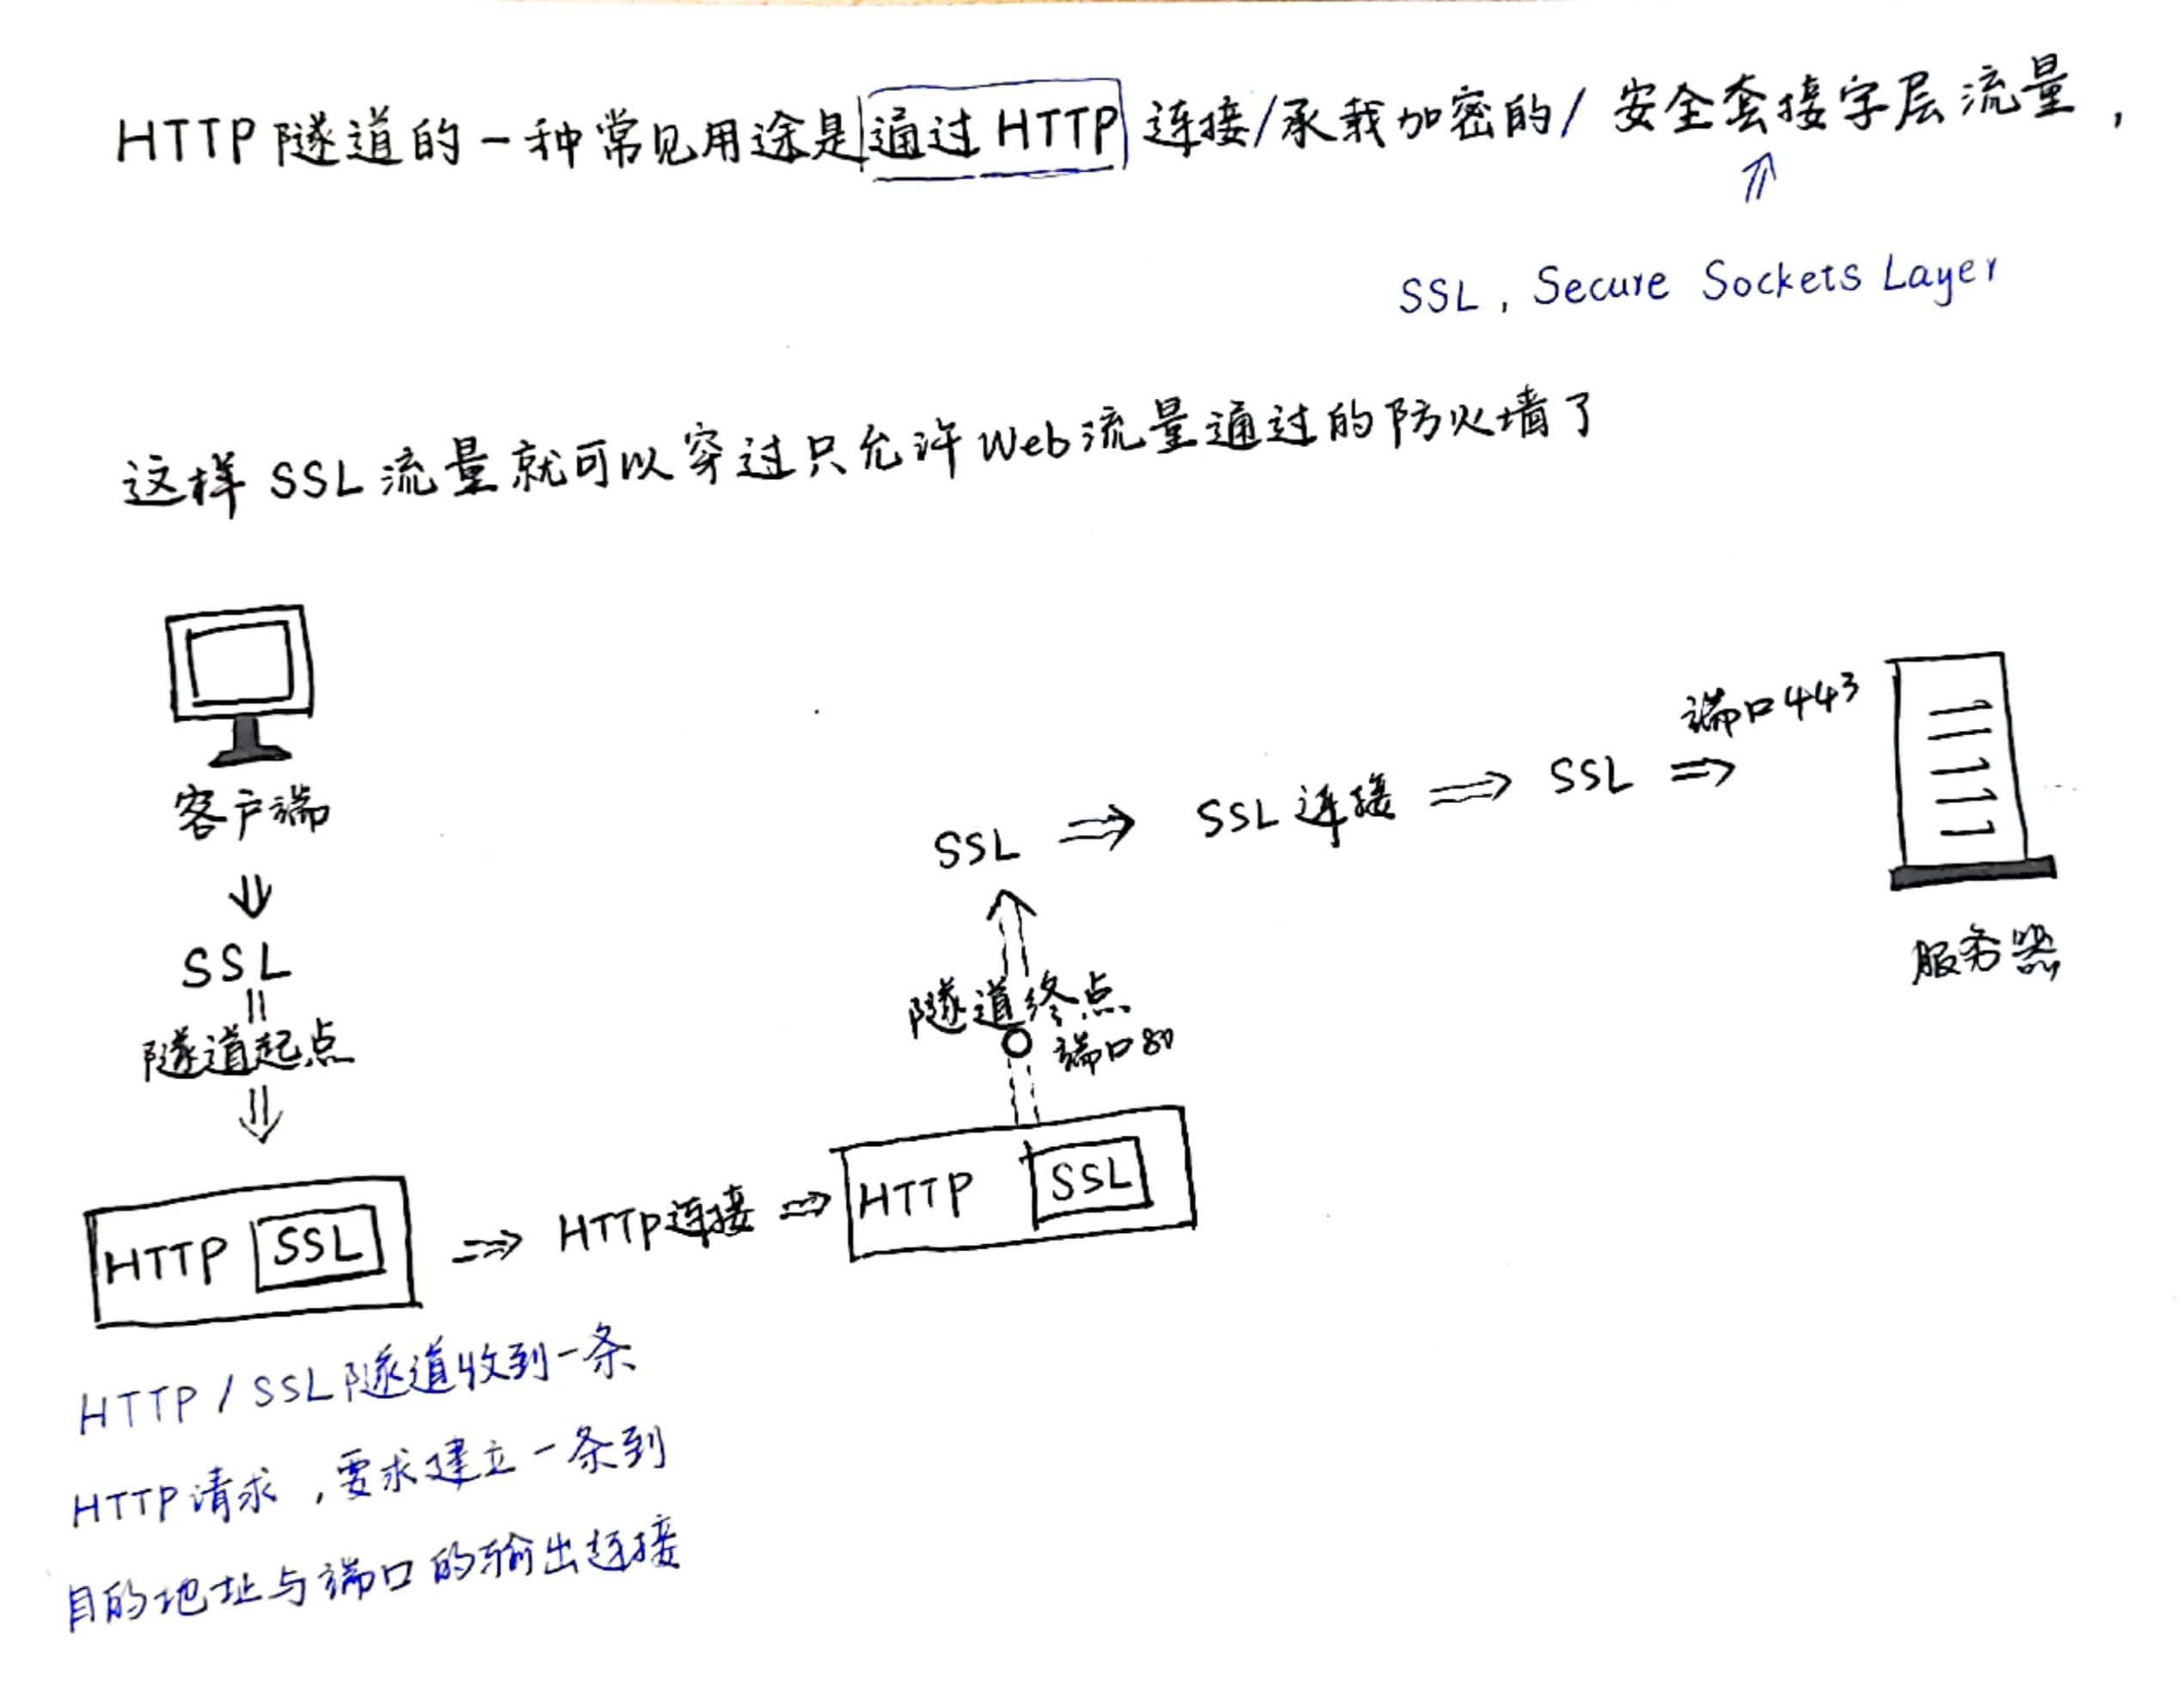 HTTP隧道的一种常见用途是通过HTTP连接/承载加密的/安全套接字层流量，
SSL，Secure Sockets Layer
这样SSL流量就可以穿过只允许Web流量通过的防火墙了
客户端
SSL
隧道起点
HTTP SSL
HTTP连接
HTTP SSL
隧道终点
端口80
SSL
SSL连接
SSL
端口443
服务器
HTTP/SSL隧道收到一条
HTTP请求，要求建立一条到
目的地址与端口的输出连接